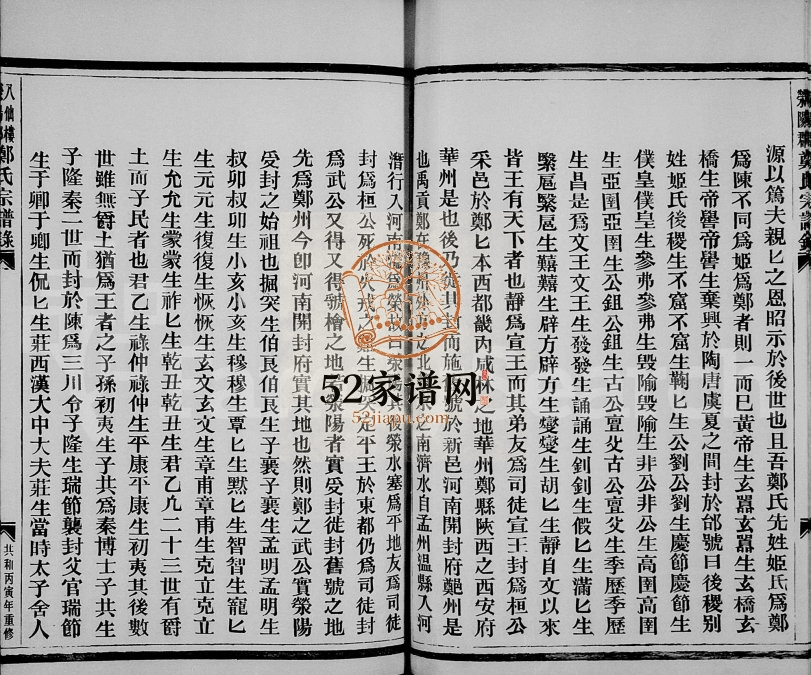 源以篤夫親匕之恩昭示於後世也且吾鄭氏先姓姬氏爲鄭
爲陳不同爲姬爲鄭者則一而巳黃帝生玄囂玄囂生玄橋玄
橋生帝嚳帝嚳生棄興於陶唐虞夏之間封於邰號曰後稷别
姓姬氏後稷生不窟不窟生鞠匕生公劉公劉生慶節慶節生
僕皇僕皇生參弗參弗生毁隃毁隃生非公非公生高圉高圉
生亞圉亞圉生公鉏公鉏生古公亶父古公亶父生季歷季歷
生昌是爲文王文王生發發生誦誦生釗釗生假匕生滿匕生
繄扈繄扈生囏囏生辟方辟方生燮燮生胡匕生靜自文以來
皆王有天下者也靜爲宣王而其弟友爲司徒宣王封爲桓公
采邑於鄭匕本西都畿内咸林之地華州鄭縣陝西之西安府
華州是也後乃徙其封而施號於新邑河南開封府鄭州是
也禹貢鄭在豫州外方之北水之南濟水自孟州温縣入河
潛行入河南爲滎後滎水塞爲平地友爲司徒
封爲桓公死於犬戎之難生平王於東都仍爲司徒封
爲武公又得又得虢檜之地滎陽者實受封徙封舊號之地
先爲鄭州今卽河南開封府實其地也然則鄭之武公實滎陽
受封之始祖也掘突生伯長伯長生子襄子襄生孟明孟明生
叔卯叔卯生小亥小亥生穆穆生覃匕生默匕生智智生寵匕
生元元生復復生恢恢生玄文玄文生章甫章甫生克立克立
生允允生蒙蒙生祚匕生乾丑乾丑生君乙凢二十三世有爵
土而子民者也君乙生祿仲祿仲生平康平康生初夷其後數
世雖無爵土猶爲王者之子孫初夷生子共爲秦博士子共生
子隆秦二世而封於陳爲三川令子隆生瑞節襲封父官瑞節
生于卿于卿生侃匕生莊西漢大中大夫莊生當時太子舍人
八仙樓
鄭氏宗譜錄
共和丙寅年重修
52家谱网
52jiapu.com